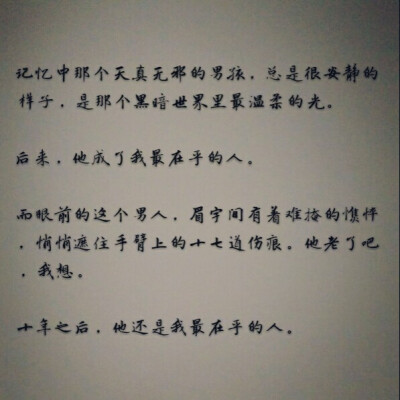 记忆中那个天真无邪的男孩，总是很安静的
样子，是那个黑暗世界里最温柔的光。
后来，他成了我最在乎的人。
而眼前的这个男人，眉宇间有着难掩的憔悴
，悄悄遮住手臂上的十七道伤痕。他老了吧
，我想。
十年之后，他还是我最在乎的人。